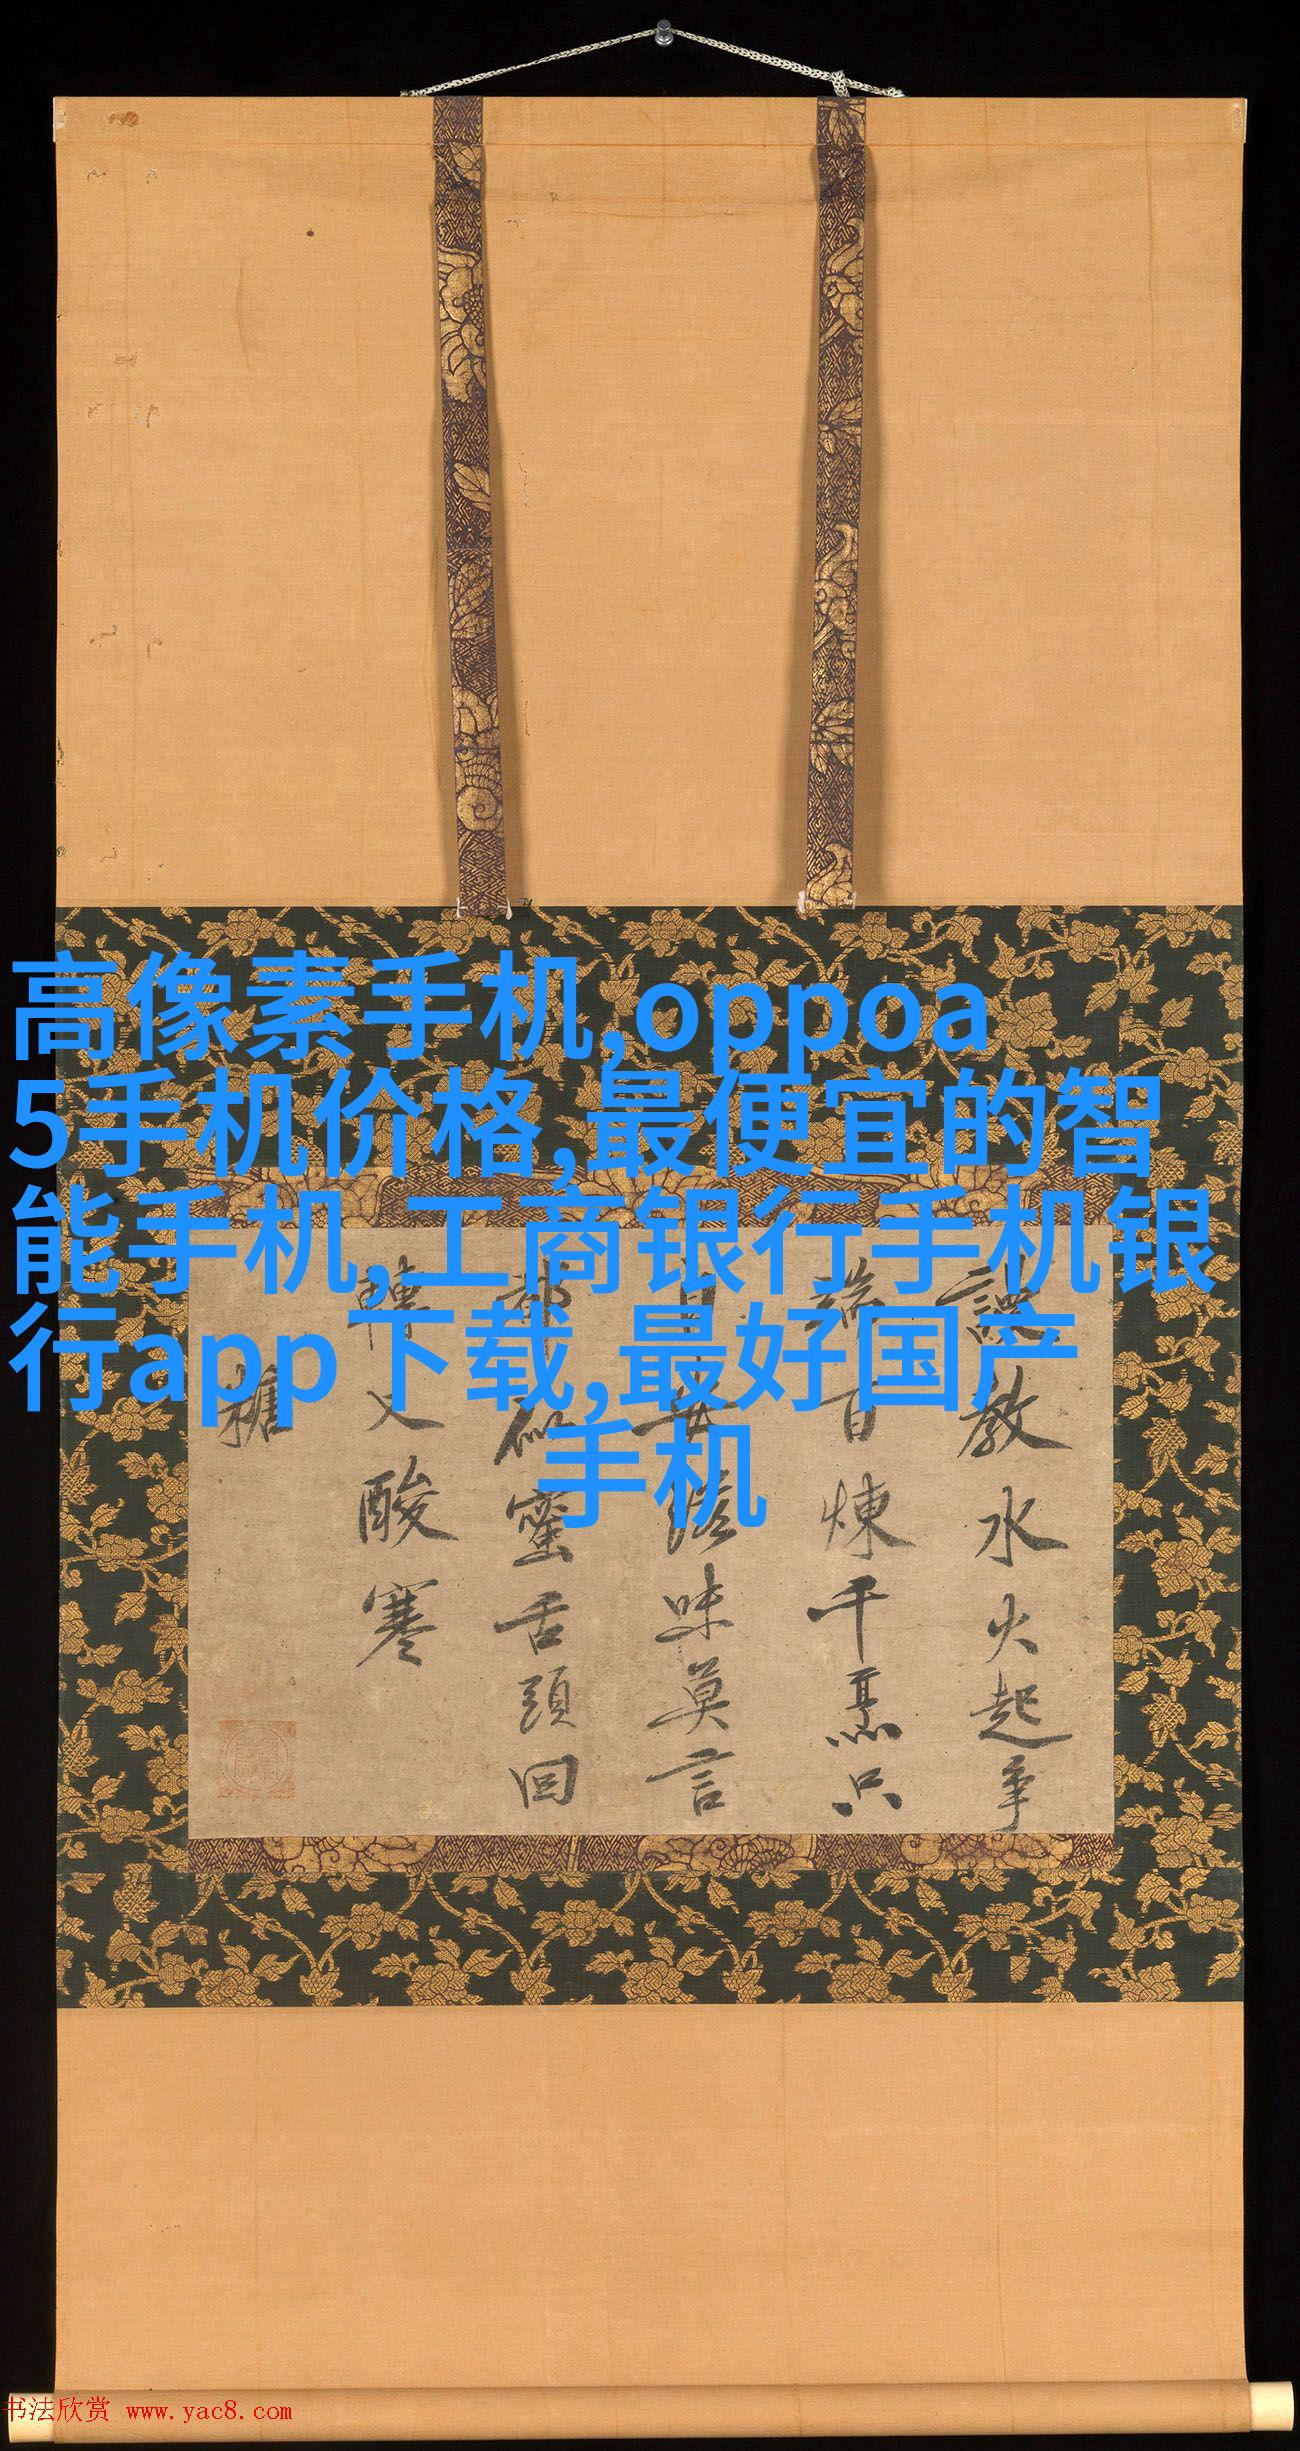 高像素手机,oppoa
5手机价格,最便宜的智
能手机,工商银行手机银
行app下载,最好国产
手机
教水火起争
百煉千烹只
味莫言
蜜舌頭回
轉又酸寒
糖
书法欣赏 www.yac8.com